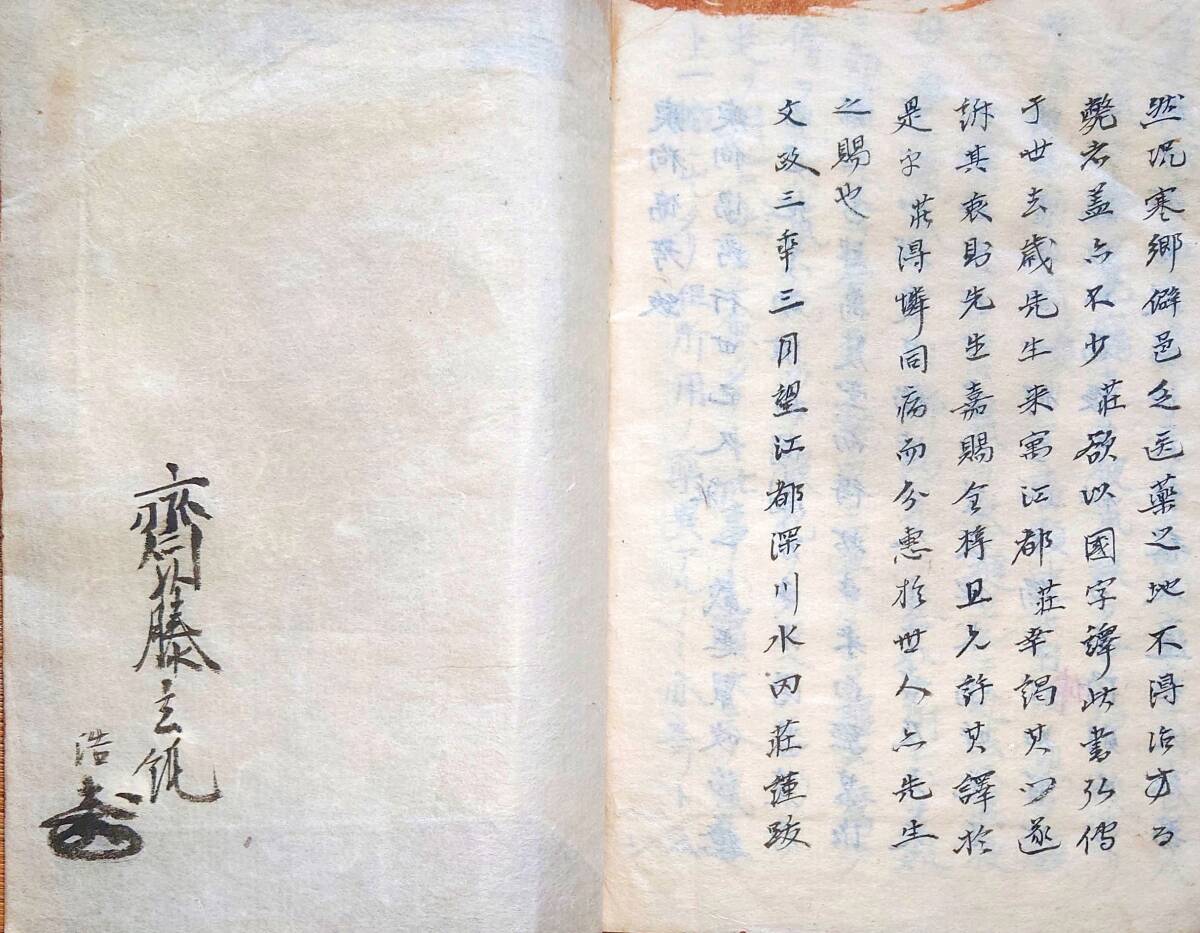 然况寒郷僻邑乏医薬之地不得治方而
斃者盖亦不少荘欲以國字譯此書弘傳
于世去歳先生来寓江都荘幸謁其門遂
訴其衷則先生嘉賜全稿且允許其譯於
是乎荘得憐同病而分惠於世人亦先生
之賜也
文政三年三月望江都深川水内荘謹跋
齋藤玄
浩